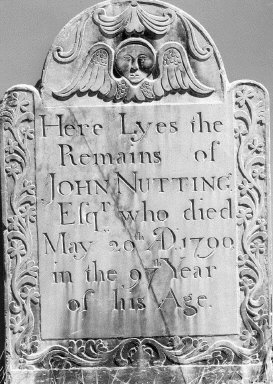 Here Lyes the
Remains of
JOHN NUTTING
Esqr who died
May 20th A.D. 1790
in the 97th Year
of his Age.